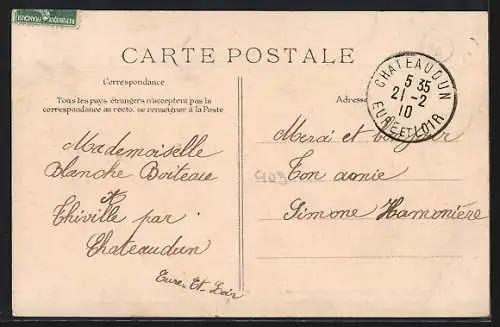 CARTE POSTALE
Correspondance
Tous les pays étrangers n'acceptent pas la
correspondance au recto, se renseigner à la Poste
Mademoiselle
Blanche Boiteau
Thiville par
Chateaudun
Eure-Et-Loir
Adresse
CHATEAUDUN
5 35
21 - 2
10
EURE ET LOIR
Merci et bonjour
Ton amie
Simone Hamonière